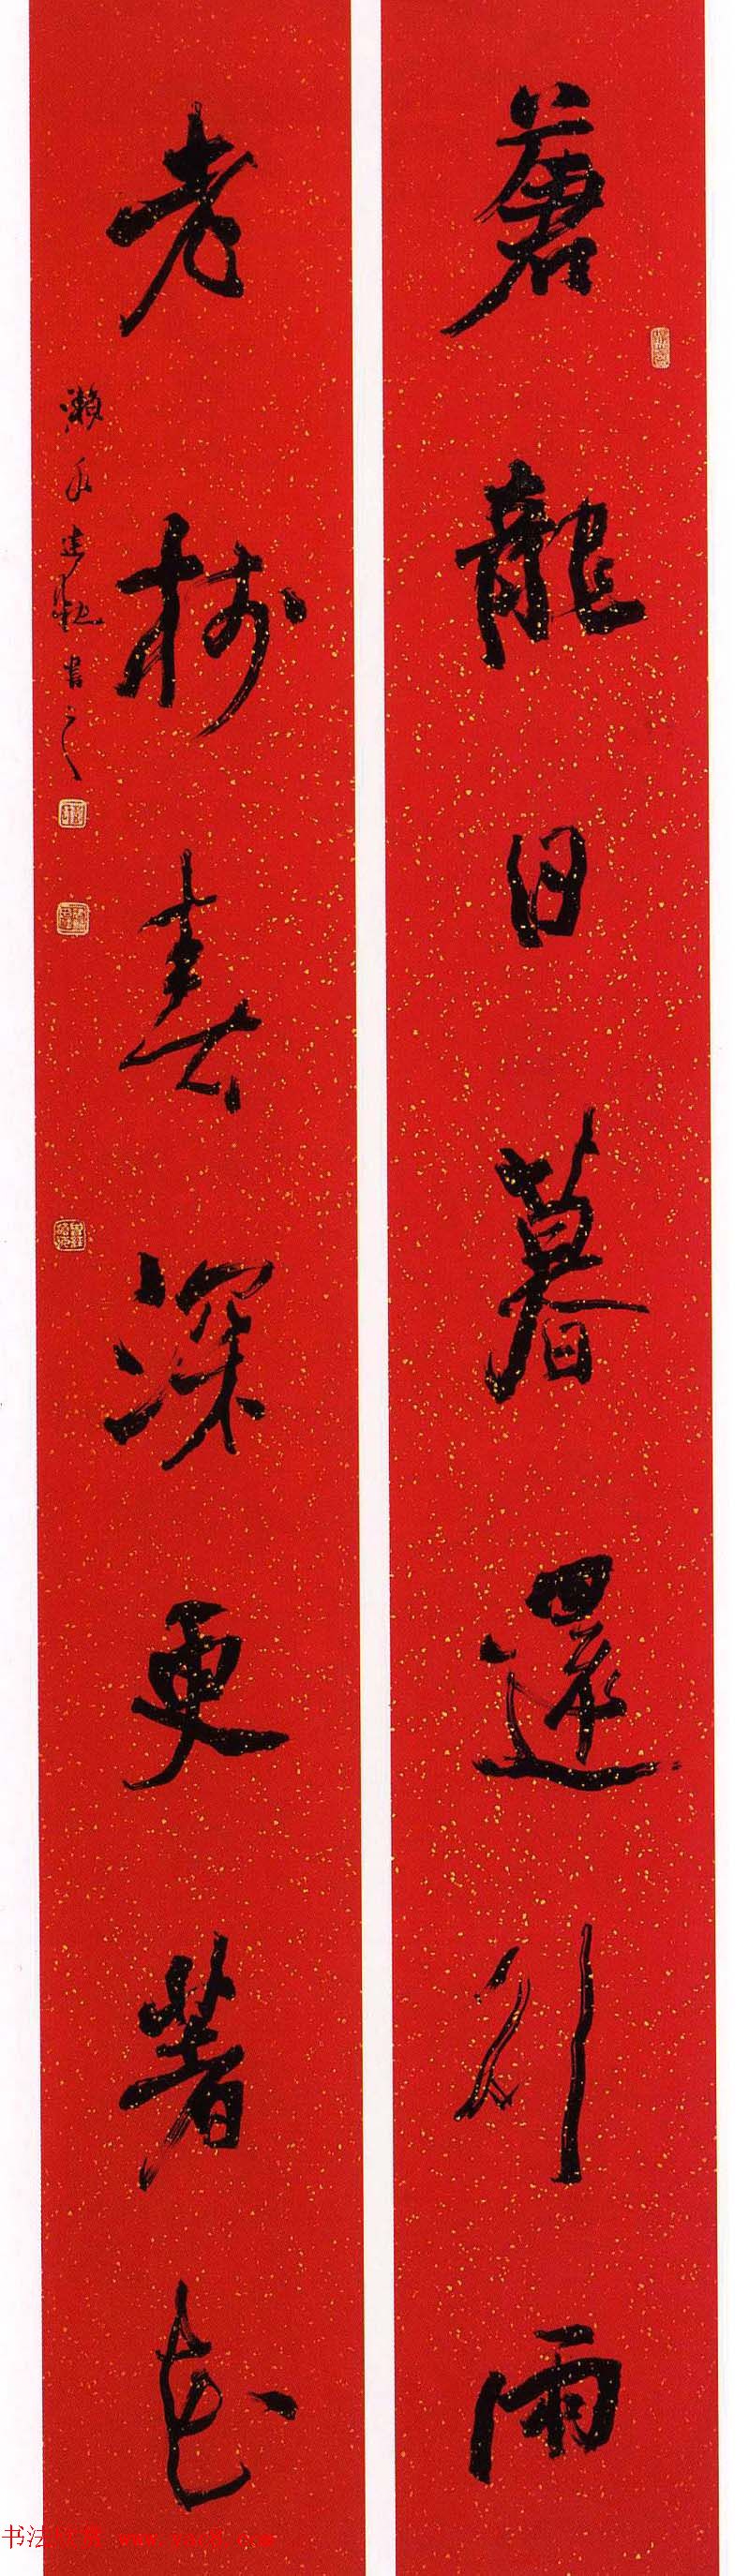 蒼龍日暮還行雨
老树春深更著花
瀨水建勳書之
书法欣赏